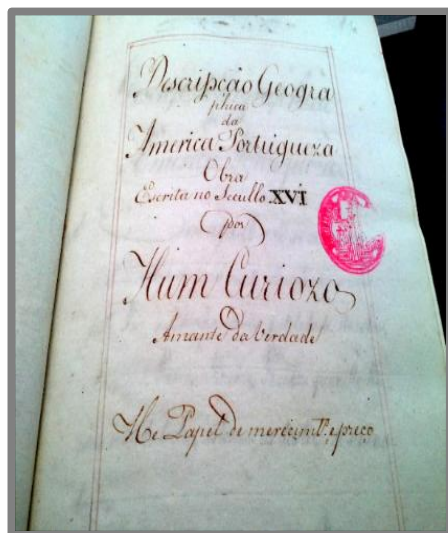 Descripção Geogra
phica
da
America Portugueza
Obra
Escrita no Secullo XVI
por
Hum Curiozo
Amante da Verdade
He Papel de merecimto. e preço